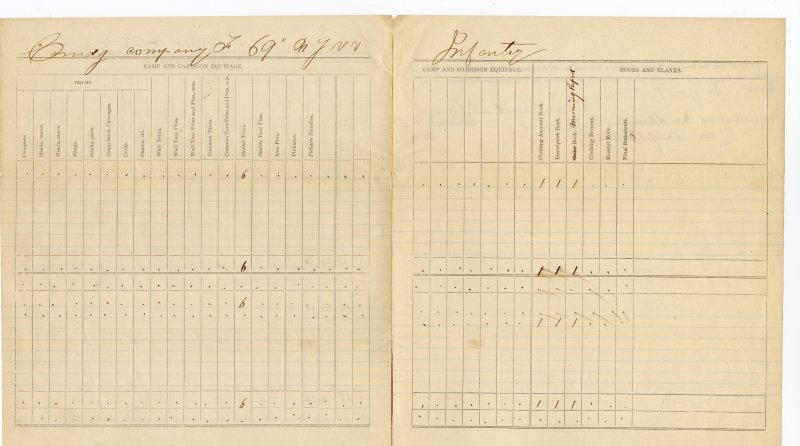 Comdg company F 69" N Y V V
Infantry
CAMP AND GARRISON EQUIPAGE.
CAMP AND GARRISON EQUIPAGE.
BOOKS AND BLANKS.
DRUMS.
Complete.
Heads, batter.
Heads, snare.
Slings.
Sticks, pairs.
Drum Stick Carriages.
Cords.
Snares, set.
Wall Tents.
Wall Tent Flies.
Wall Tent Poles and Pins, sets.
Common Tents.
Common Tent Poles and Pins, sets.
Shelter Tents.
Shelter Tent Flies.
Iron Pots.
Pickaxes.
Pickaxe Handles.
Clothing Account Book.
Descriptive Book.
Order Book. Morning Report
Clothing Returns.
Receipt Rolls.
Final Statements.
6
1 1 1
6
1 1 1
6
1 1 1
6
1 1 1